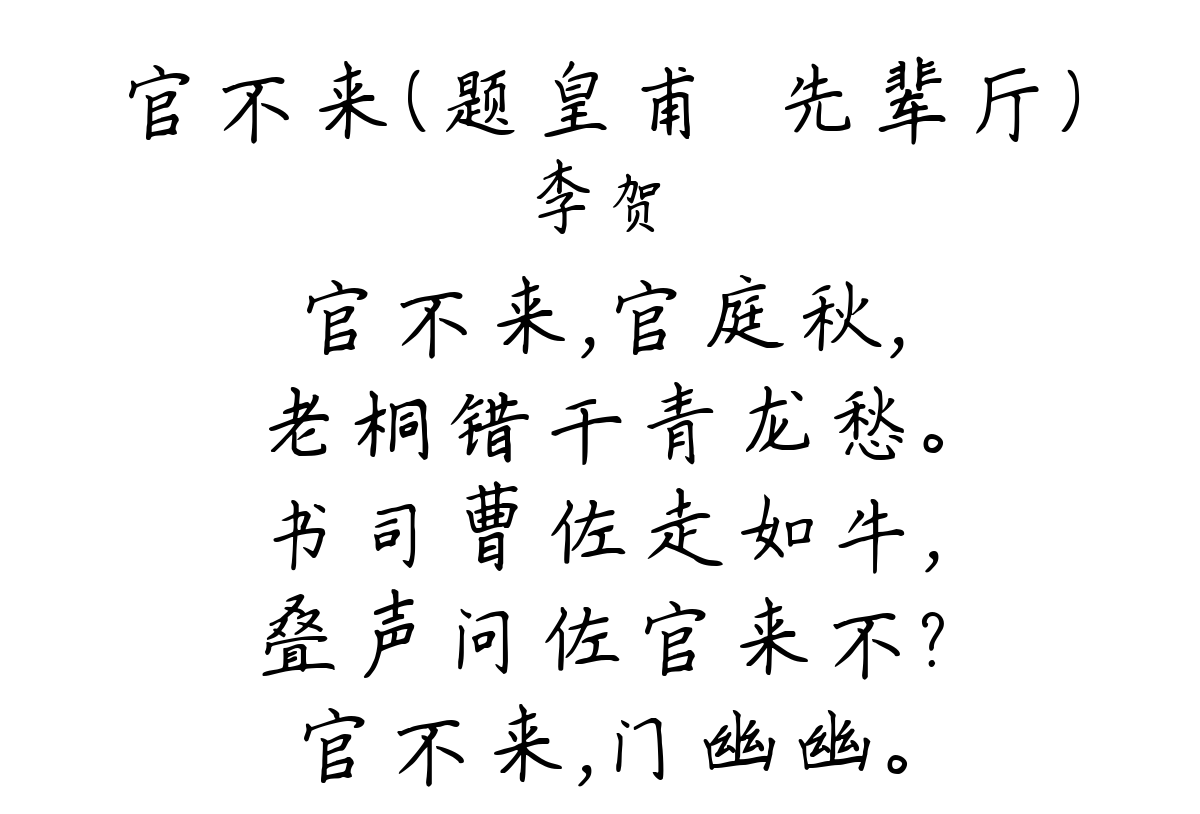 官不来(题皇甫 先辈厅)
李贺
官不来,官庭秋,
老桐错干青龙愁。
书司曹佐走如牛,
叠声问佐官来不?
官不来,门幽幽。